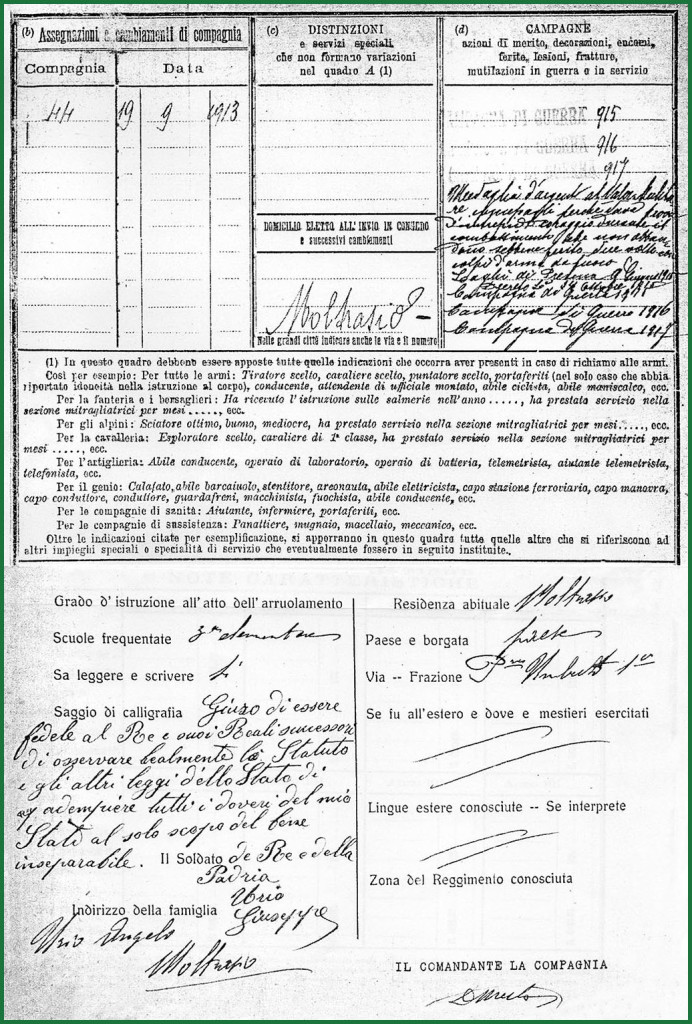 (b) Assegnazioni e cambiamenti di compagnia
Compagnia Data
44 19 9 1913
(c) DISTINZIONI
e servizi speciali
che non formano variazioni
nel quadro A (1)
DOMICILIO ELETTO ALL'INVIO IN CONGEDO
e successivi cambiamenti
Moltrasio
Nelle grandi città indicare anche la via e il numero
(d) CAMPAGNE
azioni di merito, decorazioni, encomi,
ferite, lesioni, fratture,
mutilazioni in guerra o in servizio
DI GUERRA 915
DI GUERRA 916
DI GUERRA 917
Medaglia d'argento al Valor Militare
combattimento
colpi d'arma da fuoco
Campagna di Guerra
Campagna di Guerra 1916
Campagna di Guerra 1917
(1) In questo quadro debbono essere apposte tutte quelle indicazioni che occorra aver presenti in caso di richiamo alle armi.
Così per esempio: Per tutte le armi: Tiratore scelto, cavaliere scelto, puntatore scelto, portaferiti (nel solo caso che abbia
riportato idoneità nella istruzione al corpo), conducente, attendente di ufficiale montato, abile ciclista, abile maniscalco, ecc.
Per la fanteria e i bersaglieri: Ha ricevuto l'istruzione sulle salmerie nell'anno ....., ha prestato servizio nella
sezione mitragliatrici per mesi ....., ecc.
Per gli alpini: Sciatore ottimo, buono, mediocre, ha prestato servizio nella sezione mitragliatrici per mesi....., ecc.
Per la cavalleria: Esploratore scelto, cavaliere di 1ª classe, ha prestato servizio nella sezione mitragliatrici per
mesi ....., ecc.
Per l'artiglieria: Abile conducente, operaio di laboratorio, operaio di batteria, telemetrista, aiutante telemetrista,
telefonista, ecc.
Per il genio: Calafato, abile barcaiuolo, stentitore, areonauta, abile elettricista, capo stazione ferroviario, capo manovra,
capo conduttore, conduttore, guardafreni, macchinista, fuochista, abile conducente, ecc.
Per le compagnie di sanità: Aiutante, infermiere, portaferiti, ecc.
Per le compagnie di sussistenza: Panattiere, mugnaio, macellaio, meccanico, ecc.
Oltre le indicazioni citate per esemplificazione, si apporranno in questo quadro tutte quelle altre che si riferiscono ad
altri impieghi speciali o specialità di servizio che eventualmente fossero in seguito instituite.
Grado d'istruzione all'atto dell'arruolamento
Scuole frequentate 3ª elementare
Sa leggere e scrivere Si
Saggio di calligrafia Giuro di essere
fedele al Re e suoi Reali successori
di osservare lealmente lo Statuto
e gli altri leggi dello Stato di
adempiere tutti i doveri del mio
Stato al solo scopo del bene
inseparabile. Il Soldato de Re e della
Padria
Urio
Giuseppe
Indirizzo della famiglia
Urio Angelo
Moltrasio
Residenza abituale Moltrasio
Paese e borgata paese
Via -- Frazione Umberto 1º
Se fu all'estero e dove e mestieri esercitati
Lingue estere conosciute -- Se interprete
Zona del Reggimento conosciuta
IL COMANDANTE LA COMPAGNIA